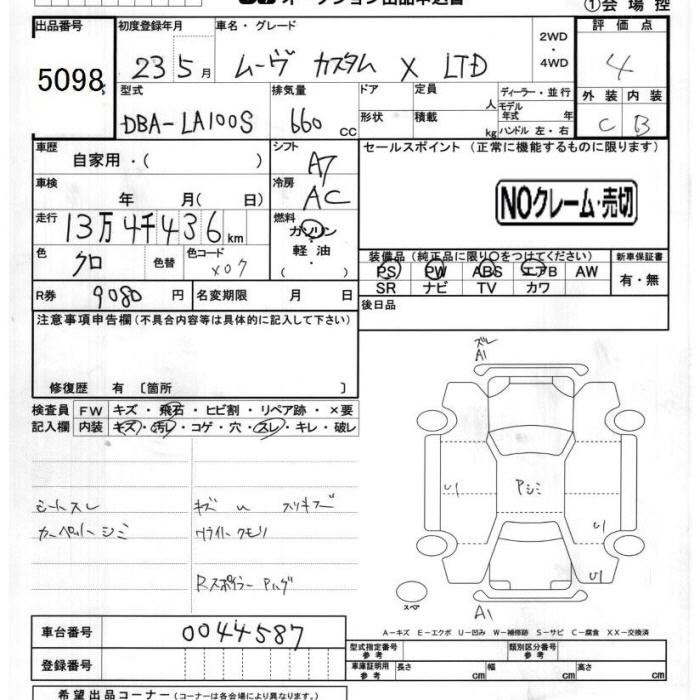 オークション出品申込書
①会場控
出品番号
5098
初度登録年月
23 5月
車名・グレード
ムーヴ カスタム X LTD
2WD
・
4WD
評価点
4
型式
DBA-LA100S
排気量
660 cc
ドア
定員
人
ディーラー・並行
モデル年式 年
形状
積載
kg
ハンドル 左・右
外装 内装
C B
車歴
自家用・( )
シフト
A7
車検
年 月( 日)
冷房
AC
走行
13万4千436 km
燃料
ガソリン
・
軽油
・( )
色
クロ
色替
色コード
X07
R券
9080 円
名変期限
月 日
セールスポイント (正常に機能するものに限ります)
NOクレーム・売切
装備品 (純正品に限り○をつけてください)
新車保証書
PS PW ABS エアB AW
有・無
SR ナビ TV カワ
後日品
注意事項申告欄 (不具合内容等は具体的に記入して下さい)
修復歴 有 〔箇所 〕
検査員
記入欄
FW キズ・飛石・ヒビ割・リペア跡・×要
内装 キズ・汚レ・コゲ・穴・スレ・キレ・破レ
シートスレ
カーペットシミ
キズ U スリキズ
Wライトクモリ
Rスポイラー Pハゲ
ズレ
A1
U1
Pシミ
U1
U1
スペア
A1
A-キズ E-エクボ U-凹み W-補修跡 S-サビ C-腐食 XX-交換済
車台番号
0044587
登録番号
型式指定番号
参考
類別区分番号
参考
車庫証明用
参考
長さ cm 幅 cm 高さ cm
希望出品コーナー (コーナーは各会場により異なります)